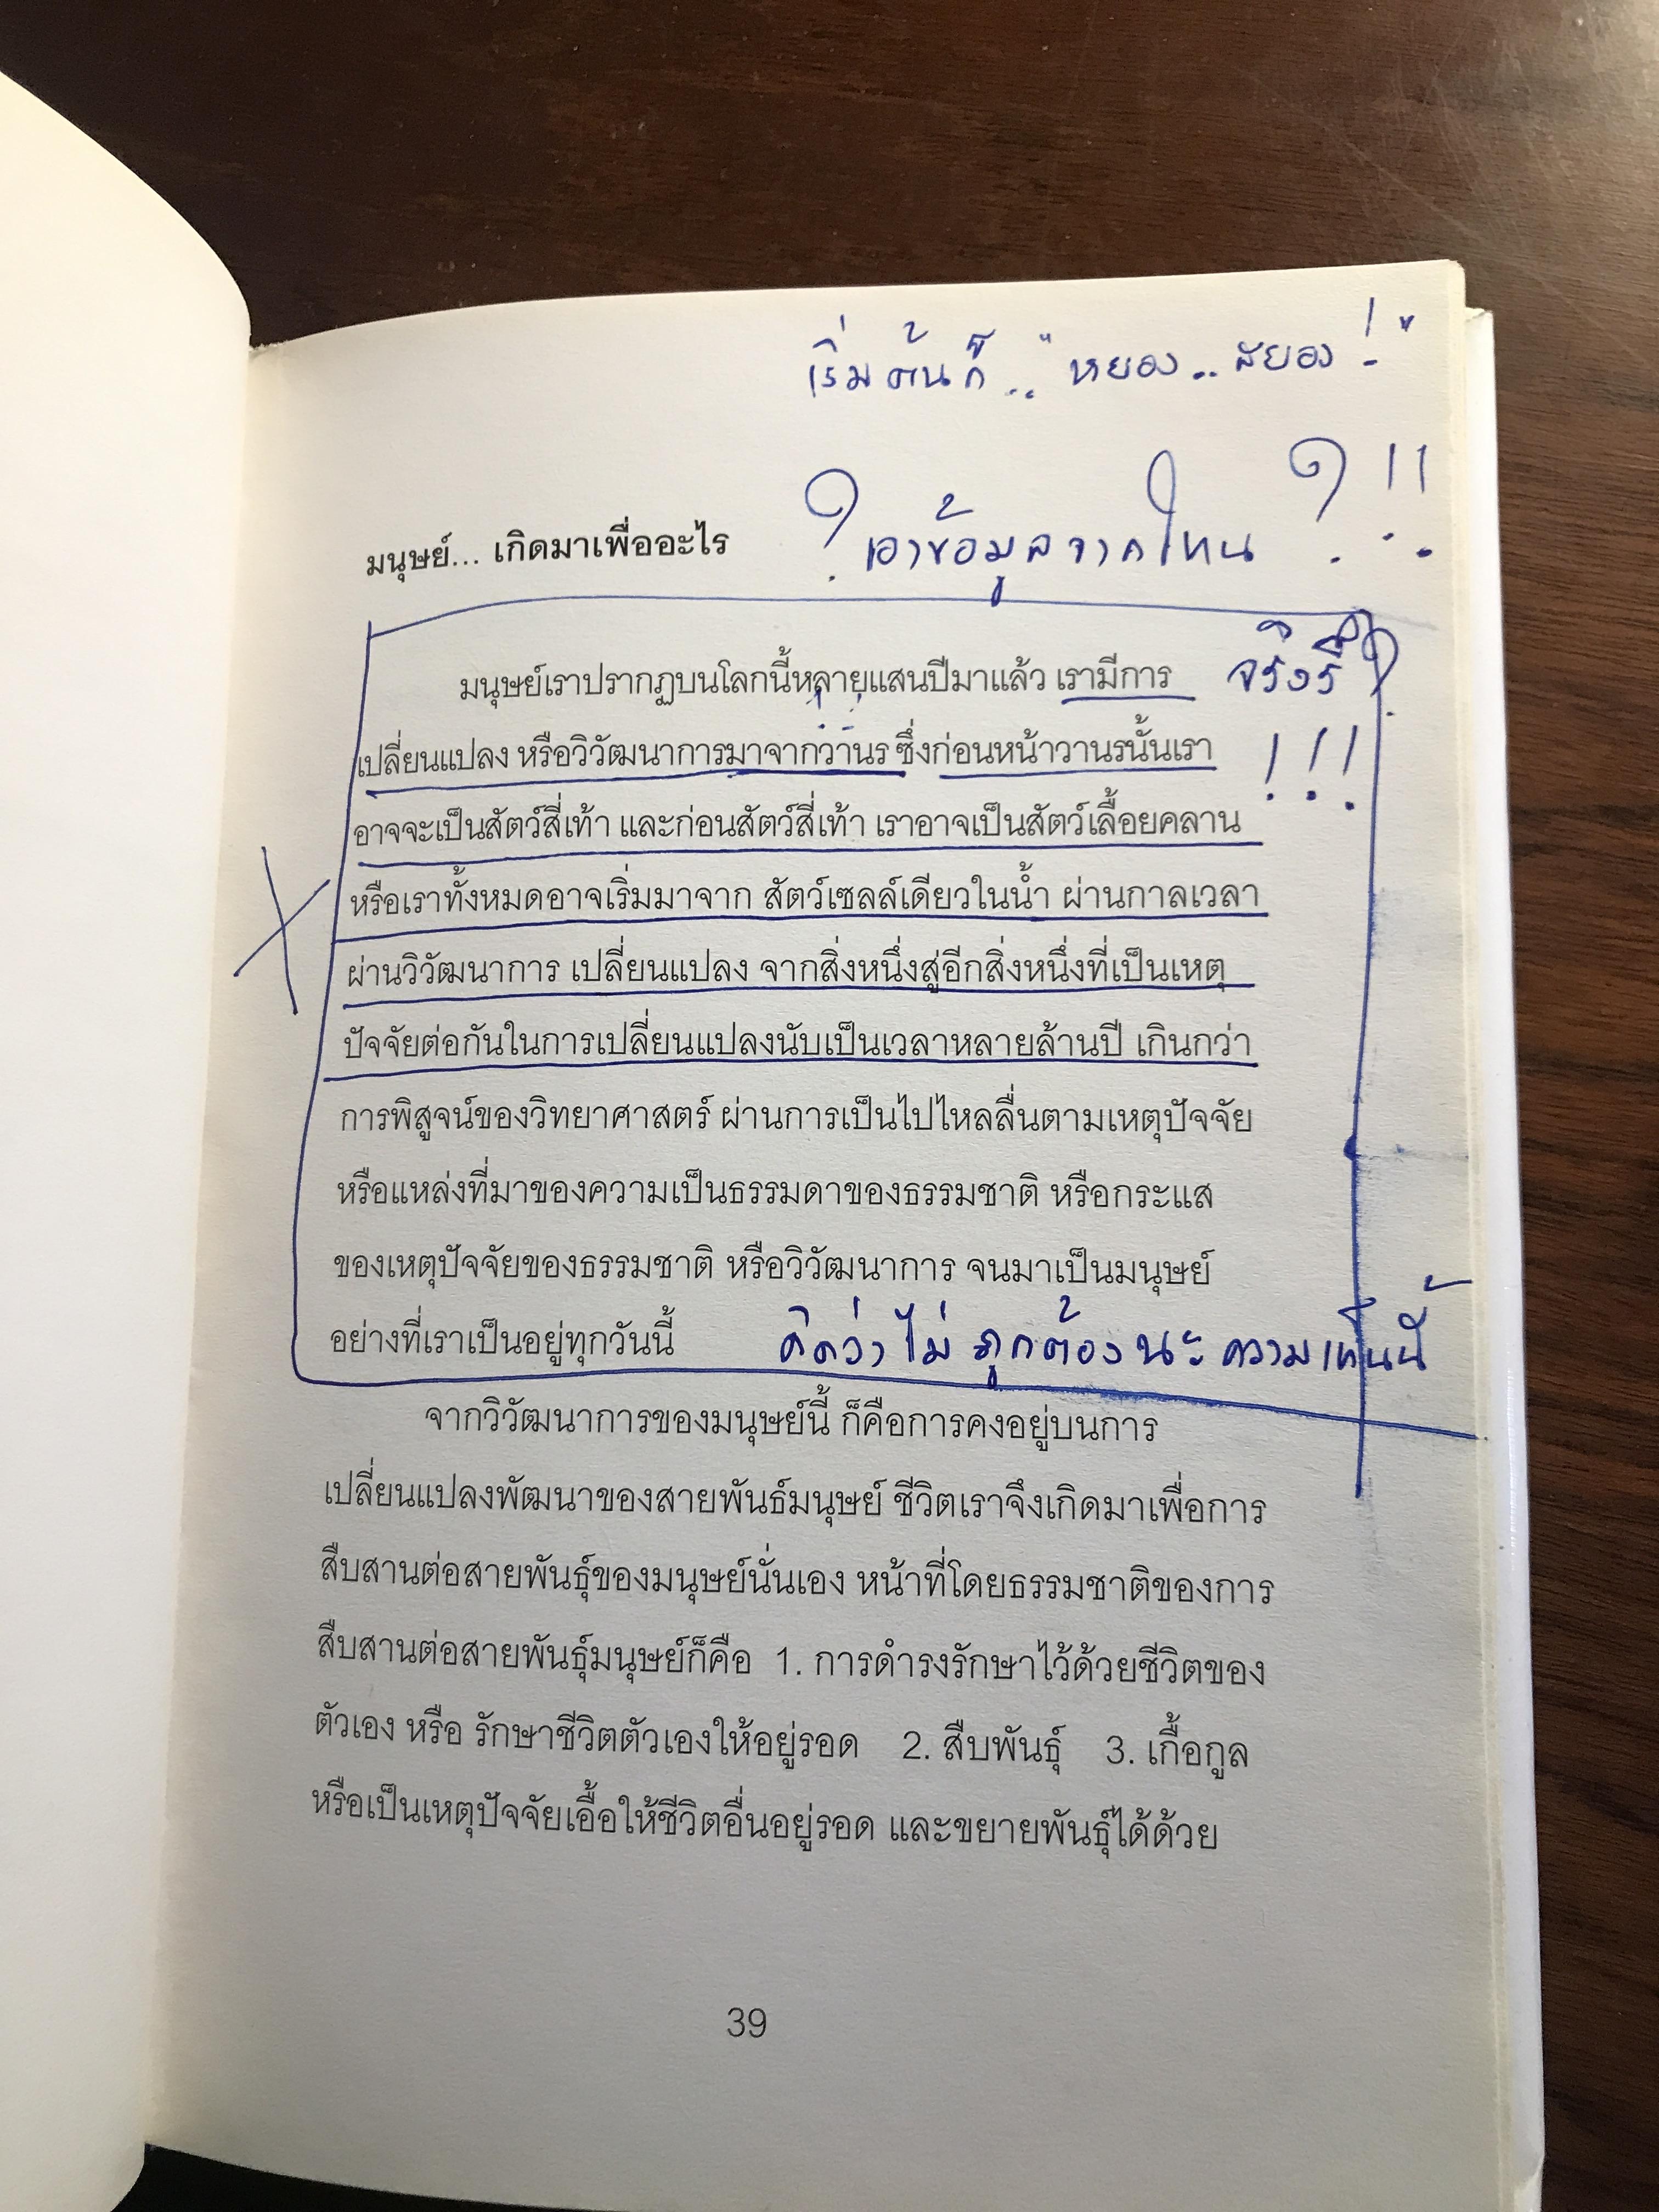 เริ่มต้นก็.. "หยอง..สยอง!"
มนุษย์... เกิดมาเพื่ออะไร
? เอาข้อมูลจากไหน ?!!
มนุษย์เราปรากฏบนโลกนี้หลายแสนปีมาแล้ว เรามีการ
จริงรึ?
เปลี่ยนแปลง หรือวิวัฒนาการมาจากวานร ซึ่งก่อนหน้าวานรนั้นเรา
!!!
อาจจะเป็นสัตว์สี่เท้า และก่อนสัตว์สี่เท้า เราอาจเป็นสัตว์เลื้อยคลาน
หรือเราทั้งหมดอาจเริ่มมาจาก สัตว์เซลล์เดียวในน้ำ ผ่านกาลเวลา
ผ่านวิวัฒนาการ เปลี่ยนแปลง จากสิ่งหนึ่งสู่อีกสิ่งหนึ่งที่เป็นเหตุ
ปัจจัยต่อกันในการเปลี่ยนแปลงนับเป็นเวลาหลายล้านปี เกินกว่า
การพิสูจน์ของวิทยาศาสตร์ ผ่านการเป็นไปไหลลื่นตามเหตุปัจจัย
หรือแหล่งที่มาของความเป็นธรรมดาของธรรมชาติ หรือกระแส
ของเหตุปัจจัยของธรรมชาติ หรือวิวัฒนาการ จนมาเป็นมนุษย์
อย่างที่เราเป็นอยู่ทุกวันนี้
คิดว่าไม่ถูกต้องนะความเห็นนี้
จากวิวัฒนาการของมนุษย์นี้ ก็คือการคงอยู่บนการ
เปลี่ยนแปลงพัฒนาของสายพันธ์มนุษย์ ชีวิตเราจึงเกิดมาเพื่อการ
สืบสานต่อสายพันธุ์ของมนุษย์นั่นเอง หน้าที่โดยธรรมชาติของการ
สืบสานต่อสายพันธุ์มนุษย์ก็คือ 1. การดำรงรักษาไว้ด้วยชีวิตของ
ตัวเอง หรือ รักษาชีวิตตัวเองให้อยู่รอด 2. สืบพันธุ์ 3. เกื้อกูล
หรือเป็นเหตุปัจจัยเอื้อให้ชีวิตอื่นอยู่รอด และขยายพันธุ์ได้ด้วย
39